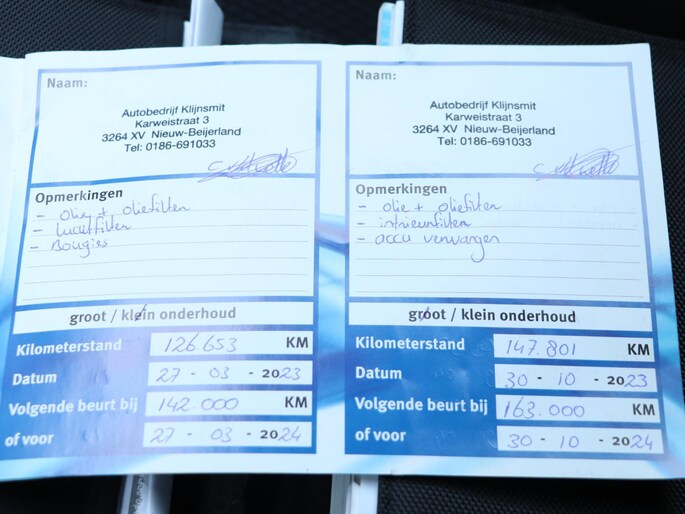 Naam:
Autobedrijf Klijnsmit
Karweistraat 3
3264 XV Nieuw-Beijerland
Tel: 0186-691033
Opmerkingen
- olie + oliefilter
- luchtfilter
- Bougies
groot / klein onderhoud
Kilometerstand 126.653 KM
Datum 27 - 03 - 2023
Volgende beurt bij 142.000 KM
of voor 27 - 03 - 2024
Naam:
Autobedrijf Klijnsmit
Karweistraat 3
3264 XV Nieuw-Beijerland
Tel: 0186-691033
Opmerkingen
- olie + oliefilter
- intrieurfilter
- accu vervangen
groot / klein onderhoud
Kilometerstand 147.801 KM
Datum 30 - 10 - 2023
Volgende beurt bij 163.000 KM
of voor 30 - 10 - 2024